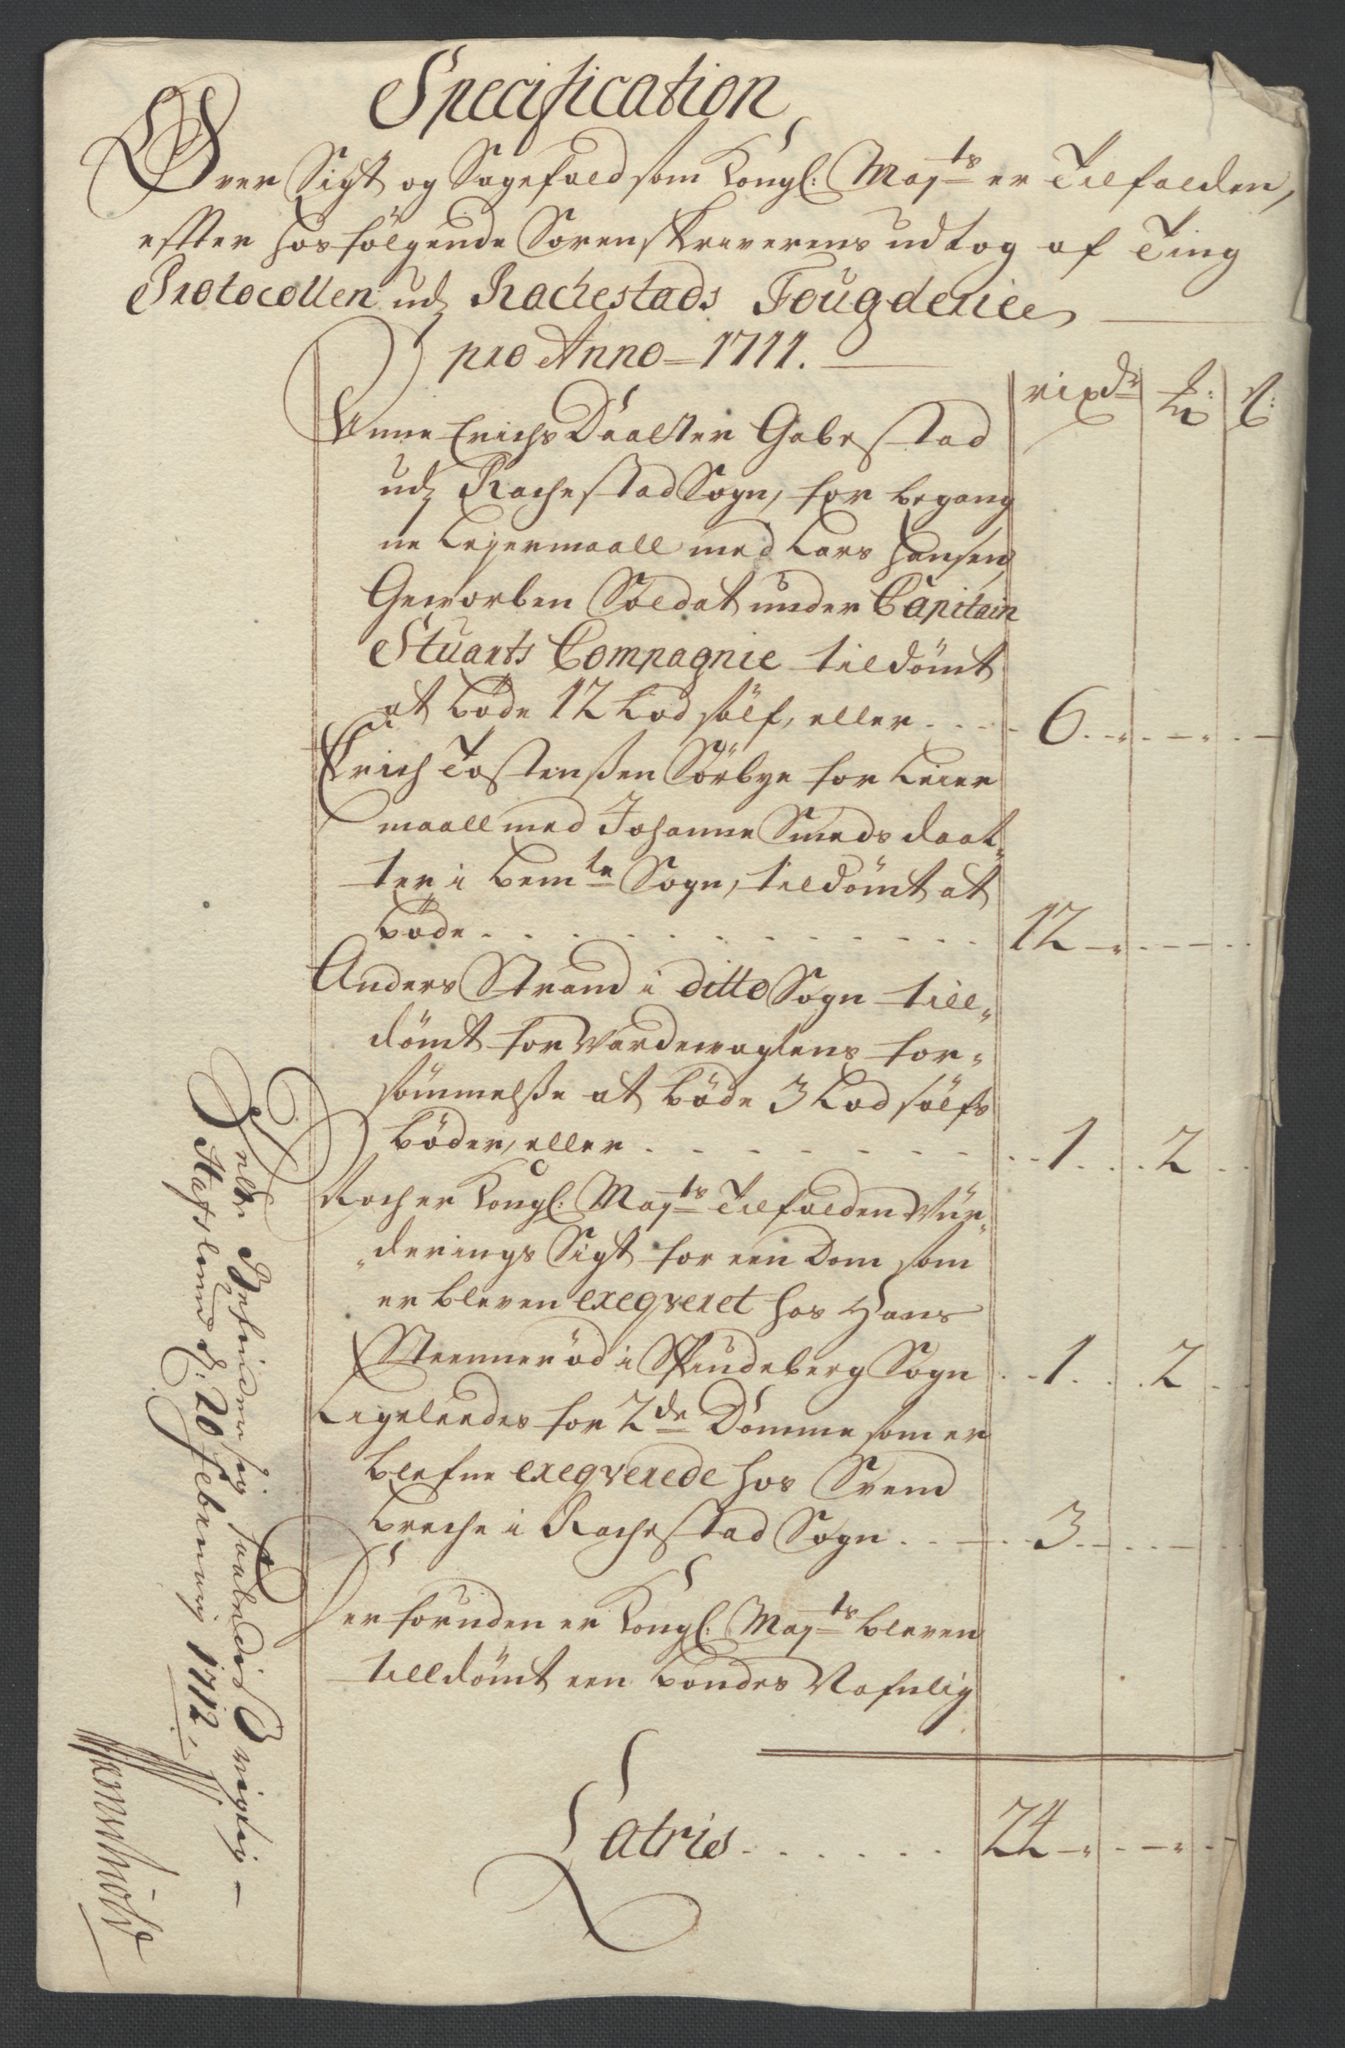 Specification
Over Sigt og Sagefald som Kongl: Maj.ts er Tilfalden,
effter hosfölgende Sorenskriverens udtog af Ting
Protocollen udj Rachestads Fougderie
pro Anno 1711.
rixdr ꝫ: ß:
Anne Erichs Daatter Gabestad
udj Rachestad Sogn, for begang
ne Lejermaall med Lars Hansen,
Geworben Soldat under Capitain
Stuarts Compagnie tildömt
at böde 12 Lod sölf, eller .... 6 .. " .. — .. " .. —
Erich Tostenßen Sörbye for Leier
maall med Johanne Smeds daat„
ter i bemte Sogn, tildömt at
böde ............ 12 — " — . — . —
Anders Strand i ditto Sogn till„
dömt for Vardevagtens for„
sömmelße at böde 3 Lod sölfs
böder, eller ......... 1 ... 2 ..
Noch er Kongl: Maj.ts Tilfalden Vür„
„derings Sigt for een Dom som
er bleven exeqveret hos Hans
Steenneröd i Skiudeberg Sogn .. 1 ... 2 ..
Ligeleedes for 2de Domme som er
blefne exeqverede hos Svend
Breche i Rachestad Sogn .... 3 .. — .. — ..
Derforuden er Kongl: Maj.ts bleven
tilldömt een bondes Nafnlig
Latris ...... 24 — " — . — " —
Dette Befindes sig saaledis Rigtig —
Hafslund d: 20 februarij 1712,